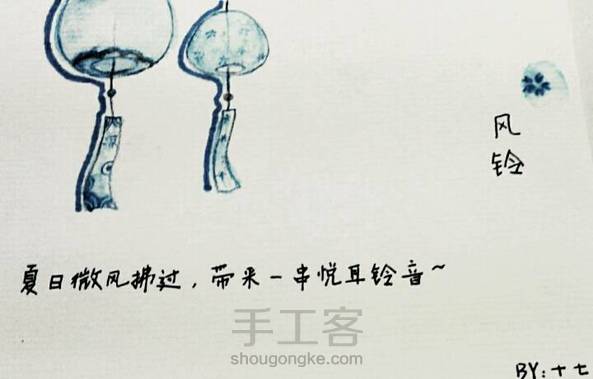 风
铃
夏日微风拂过，带来一串悦耳铃音~
手工客
shougongke.com
BY:十七